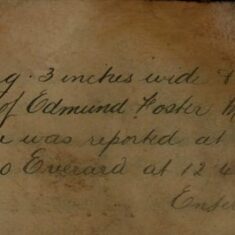 g. 3 inches wide &
of Edmund Foster
was reported at
o Everard at 12 4
Ense